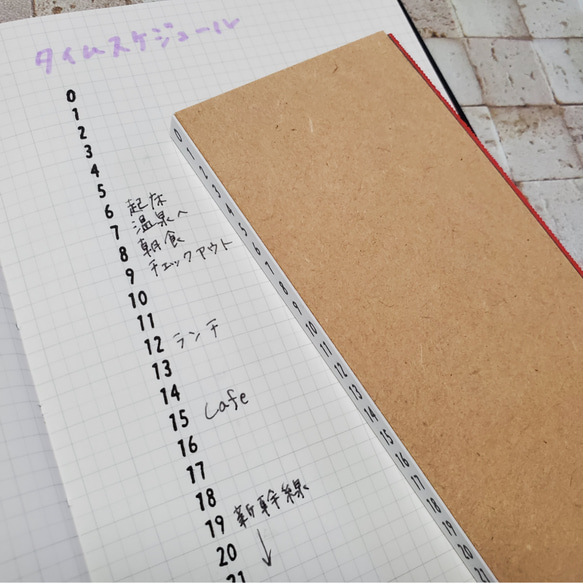 タイムスケジュール
0
1
2
3
4
5
6 起床
7 温泉へ
8 朝食
9 チェックアウト
10
11
12 ランチ
13
14
15 Cafe
16
17
18
19 新幹線
20 ↓
21
0
1
2
3
4
5
6
7
8
9
10
11
12
13
14
15
16
17
18
19
20
21